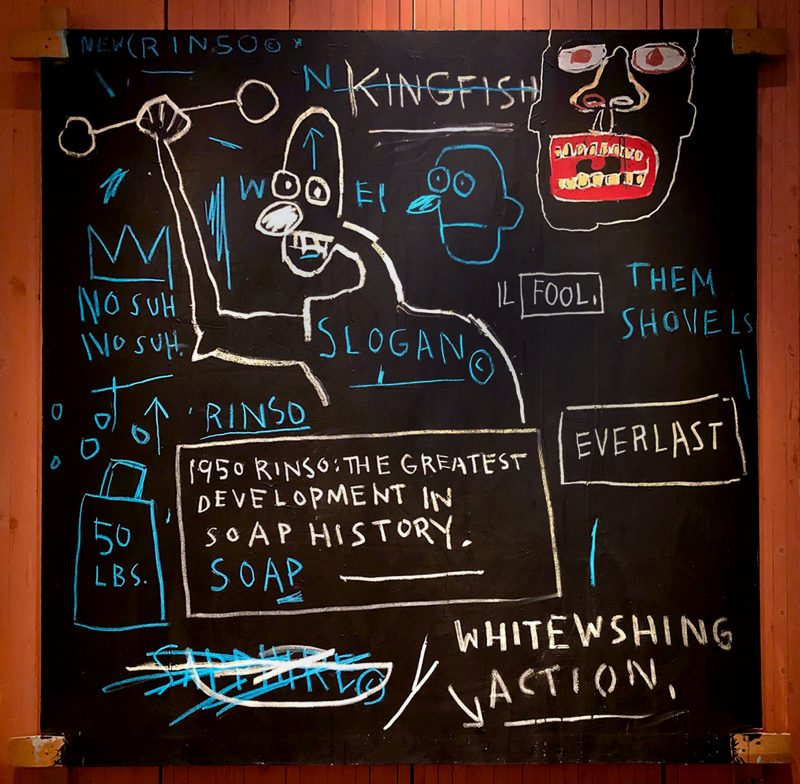 NEW (RINSO© *
N KINGFISH
W EI
NO SUH
NO SUH.
IL FOOL.
THEM
SHOVELS
SLOGAN ©
'RINSO
EVERLAST
1950 RINSO: THE GREATEST
DEVELOPMENT IN
SOAP HISTORY.
SOAP
50
LBS.
SAPPHIRE©
WHITEWSHING
ACTION.